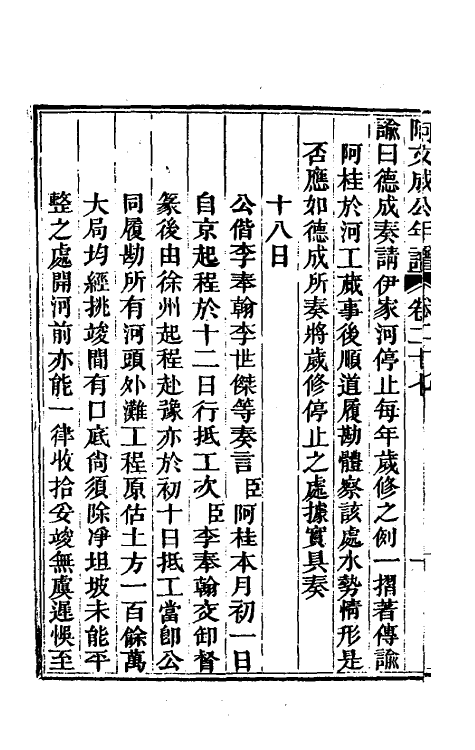 阿文成公年譜 卷二十七
諭曰德成奏請伊家河停止每年歲修之例一摺著傳諭
阿桂於河工蕆事後順道履勘體察該處水勢情形是
否應如德成所奏將歲修停止之處據實具奏
十八日
公偕李奉翰李世傑等奏言臣阿桂本月初一日
自京起程於十二日行抵工次臣李奉翰交卸督
篆後由徐州起程赴豫亦於初十日抵工當卽公
同履勘所有河頭外灘工程原估土方一百餘萬
大局均經挑竣間有口底尙須除凈坦坡未能平
整之處開河前亦能一律收拾妥竣無虞遲悞至